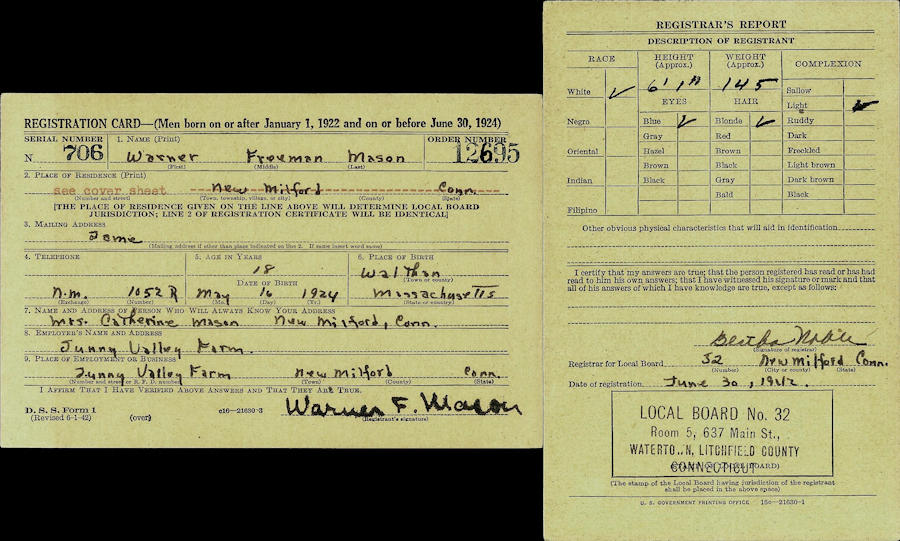 REGISTRATION CARD—(Men born on or after January 1, 1922 and on or before June 30, 1924)
SERIAL NUMBER 1. NAME (Print) ORDER NUMBER
N 706 Warner Freeman Mason 12695
(First) (Middle) (Last)
2. PLACE OF RESIDENCE (Print)
see cover sheet New Milford Conn.
(Number and street) (Town, township, village, or city) (County) (State)
[THE PLACE OF RESIDENCE GIVEN ON THE LINE ABOVE WILL DETERMINE LOCAL BOARD
JURISDICTION; LINE 2 OF REGISTRATION CERTIFICATE WILL BE IDENTICAL]
3. MAILING ADDRESS
Same
(Mailing address if other than place indicated on line 2. If same insert word same)
4. TELEPHONE 5. AGE IN YEARS 6. PLACE OF BIRTH
18 Walthan
DATE OF BIRTH (Town or county)
N.M. 1052 R May 16 1924 Massachusetts
(Exchange) (Number) (Mo.) (Day) (Yr.) (State or country)
7. NAME AND ADDRESS OF PERSON WHO WILL ALWAYS KNOW YOUR ADDRESS
Mrs. Catherine Mason New Milford, Conn.
8. EMPLOYER'S NAME AND ADDRESS
Sunny Valley Farm.
9. PLACE OF EMPLOYMENT OR BUSINESS
Sunny Valley Farm New Milford Conn.
(Number and street or R. F. D. number) (Town) (County) (State)
I AFFIRM THAT I HAVE VERIFIED ABOVE ANSWERS AND THAT THEY ARE TRUE.
D. S. S. Form 1
(Revised 6-1-42) (over) c16—21630-3 Warner F. Mason
(Registrant's signature)
REGISTRAR'S REPORT
DESCRIPTION OF REGISTRANT
RACE HEIGHT (Approx.) WEIGHT (Approx.) COMPLEXION
White ✓ 6' 1" 145 Sallow
EYES HAIR Light ✓
Negro Blue ✓ Blonde ✓ Ruddy
Gray Red Dark
Oriental Hazel Brown Freckled
Brown Black Light brown
Indian Black Gray Dark brown
Bald Black
Filipino
Other obvious physical characteristics that will aid in identification
I certify that my answers are true; that the person registered has read or has had
read to him his own answers; that I have witnessed his signature or mark and that
all of his answers of which I have knowledge are true, except as follows:
Bertha Noble
(Signature of registrar)
Registrar for Local Board 32 New Milford Conn.
(Number) (City or county) (State)
Date of registration June 30, 1942.
LOCAL BOARD No. 32
Room 5, 637 Main St.,
WATERTOWN, LITCHFIELD COUNTY
CONNECTICUT
(STAMP OF LOCAL BOARD)
(The stamp of the Local Board having jurisdiction of the registrant
shall be placed in the above space)
U. S. GOVERNMENT PRINTING OFFICE 16c—21630-1